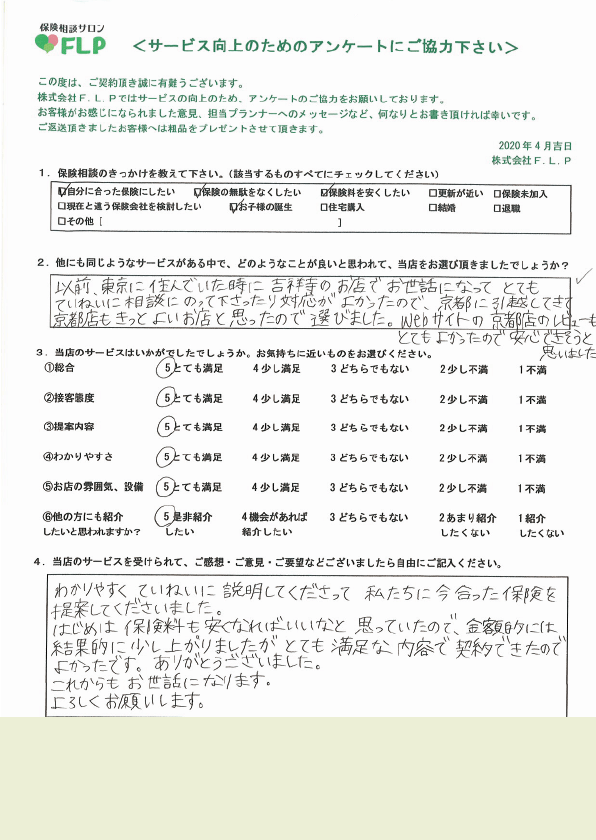 保険相談サロン
FLP
＜サービス向上のためのアンケートにご協力下さい＞
この度は、ご契約頂き誠に有難うございます。
株式会社Ｆ．Ｌ．Ｐではサービスの向上のため、アンケートのご協力をお願いしております。
お客様がお感じになられました意見、担当プランナーへのメッセージなど、何なりとお書き頂ければ幸いです。
ご返送頂きましたお客様へは粗品をプレゼントさせて頂きます。
2020年4月吉日
株式会社Ｆ．Ｌ．Ｐ
１．保険相談のきっかけを教えて下さい。（該当するものすべてにチェックしてください）
☑自分に合った保険にしたい ☑保険の無駄をなくしたい ☑保険料を安くしたい □更新が近い □保険未加入
□現在と違う保険会社を検討したい ☑お子様の誕生 □住宅購入 □結婚 □退職
□その他［ ］
２．他にも同じようなサービスがある中で、どのようなことが良いと思われて、当店をお選び頂きましたでしょうか？
以前、東京に住んでいた時に吉祥寺のお店でお世話になってとても
ていねいに相談にのって下さったり対応がよかったので、京都に引越してきて
京都店もきっとよいお店と思ったので選びました。Webサイトの京都店のレビューも
とてもよかったので安心できそうと
思いました
３．当店のサービスはいかがでしたでしょうか。お気持ちに近いものをお選びください。
①総合 5とても満足 4少し満足 3どちらでもない 2少し不満 1不満
②接客態度 5とても満足 4少し満足 3どちらでもない 2少し不満 1不満
③提案内容 5とても満足 4少し満足 3どちらでもない 2少し不満 1不満
④わかりやすさ 5とても満足 4少し満足 3どちらでもない 2少し不満 1不満
⑤お店の雰囲気、設備 5とても満足 4少し満足 3どちらでもない 2少し不満 1不満
⑥他の方にも紹介 5是非紹介 4機会があれば 3どちらでもない 2あまり紹介 1紹介
したいと思われますか？ したい 紹介したい したくない したくない
４．当店のサービスを受けられて、ご感想・ご意見・ご要望などございましたら自由にご記入ください。
わかりやすくていねいに説明してくださって私たちに今合った保険を
提案してくださいました。
はじめは保険料も安くなればいいなと思っていたので、金額的には
結果的に少し上がりましたがとても満足な内容で契約できたので
よかったです。ありがとうございました。
これからもお世話になります。
よろしくお願いします。